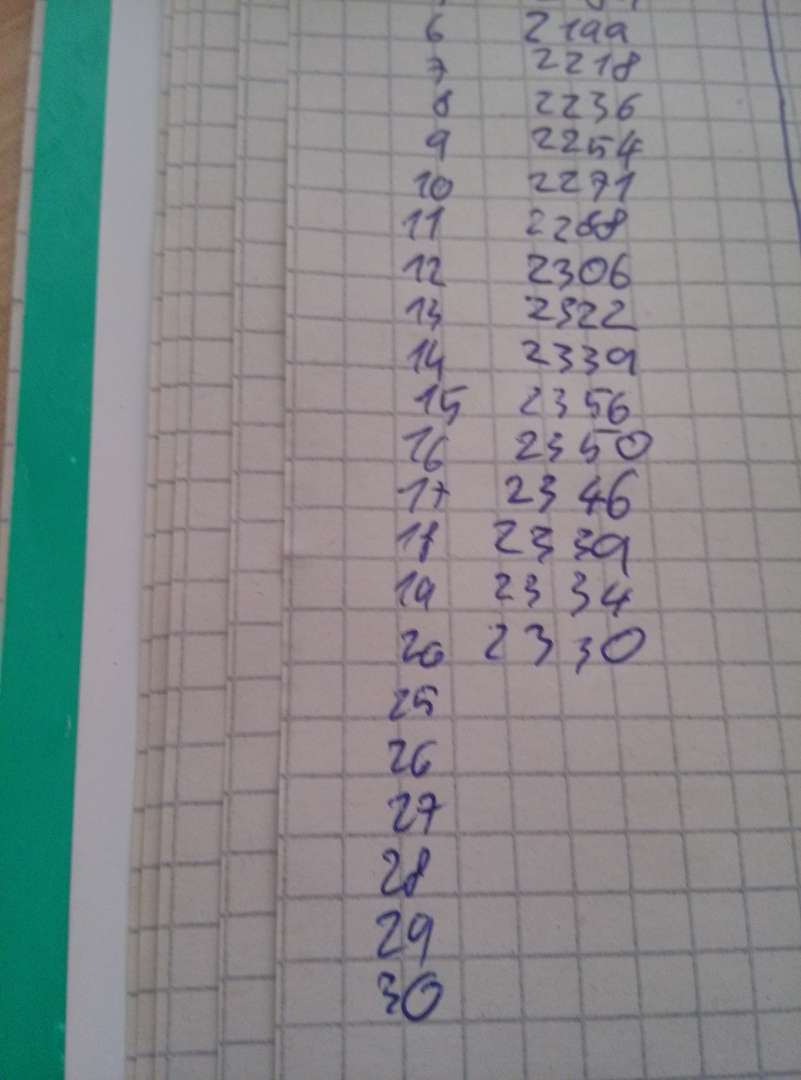 6 2199
7 2218
8 2236
9 2254
10 2271
11 2288
12 2306
13 2322
14 2339
15 2356
16 2350
17 2346
18 2339
19 2334
20 2330
25
26
27
28
29
30